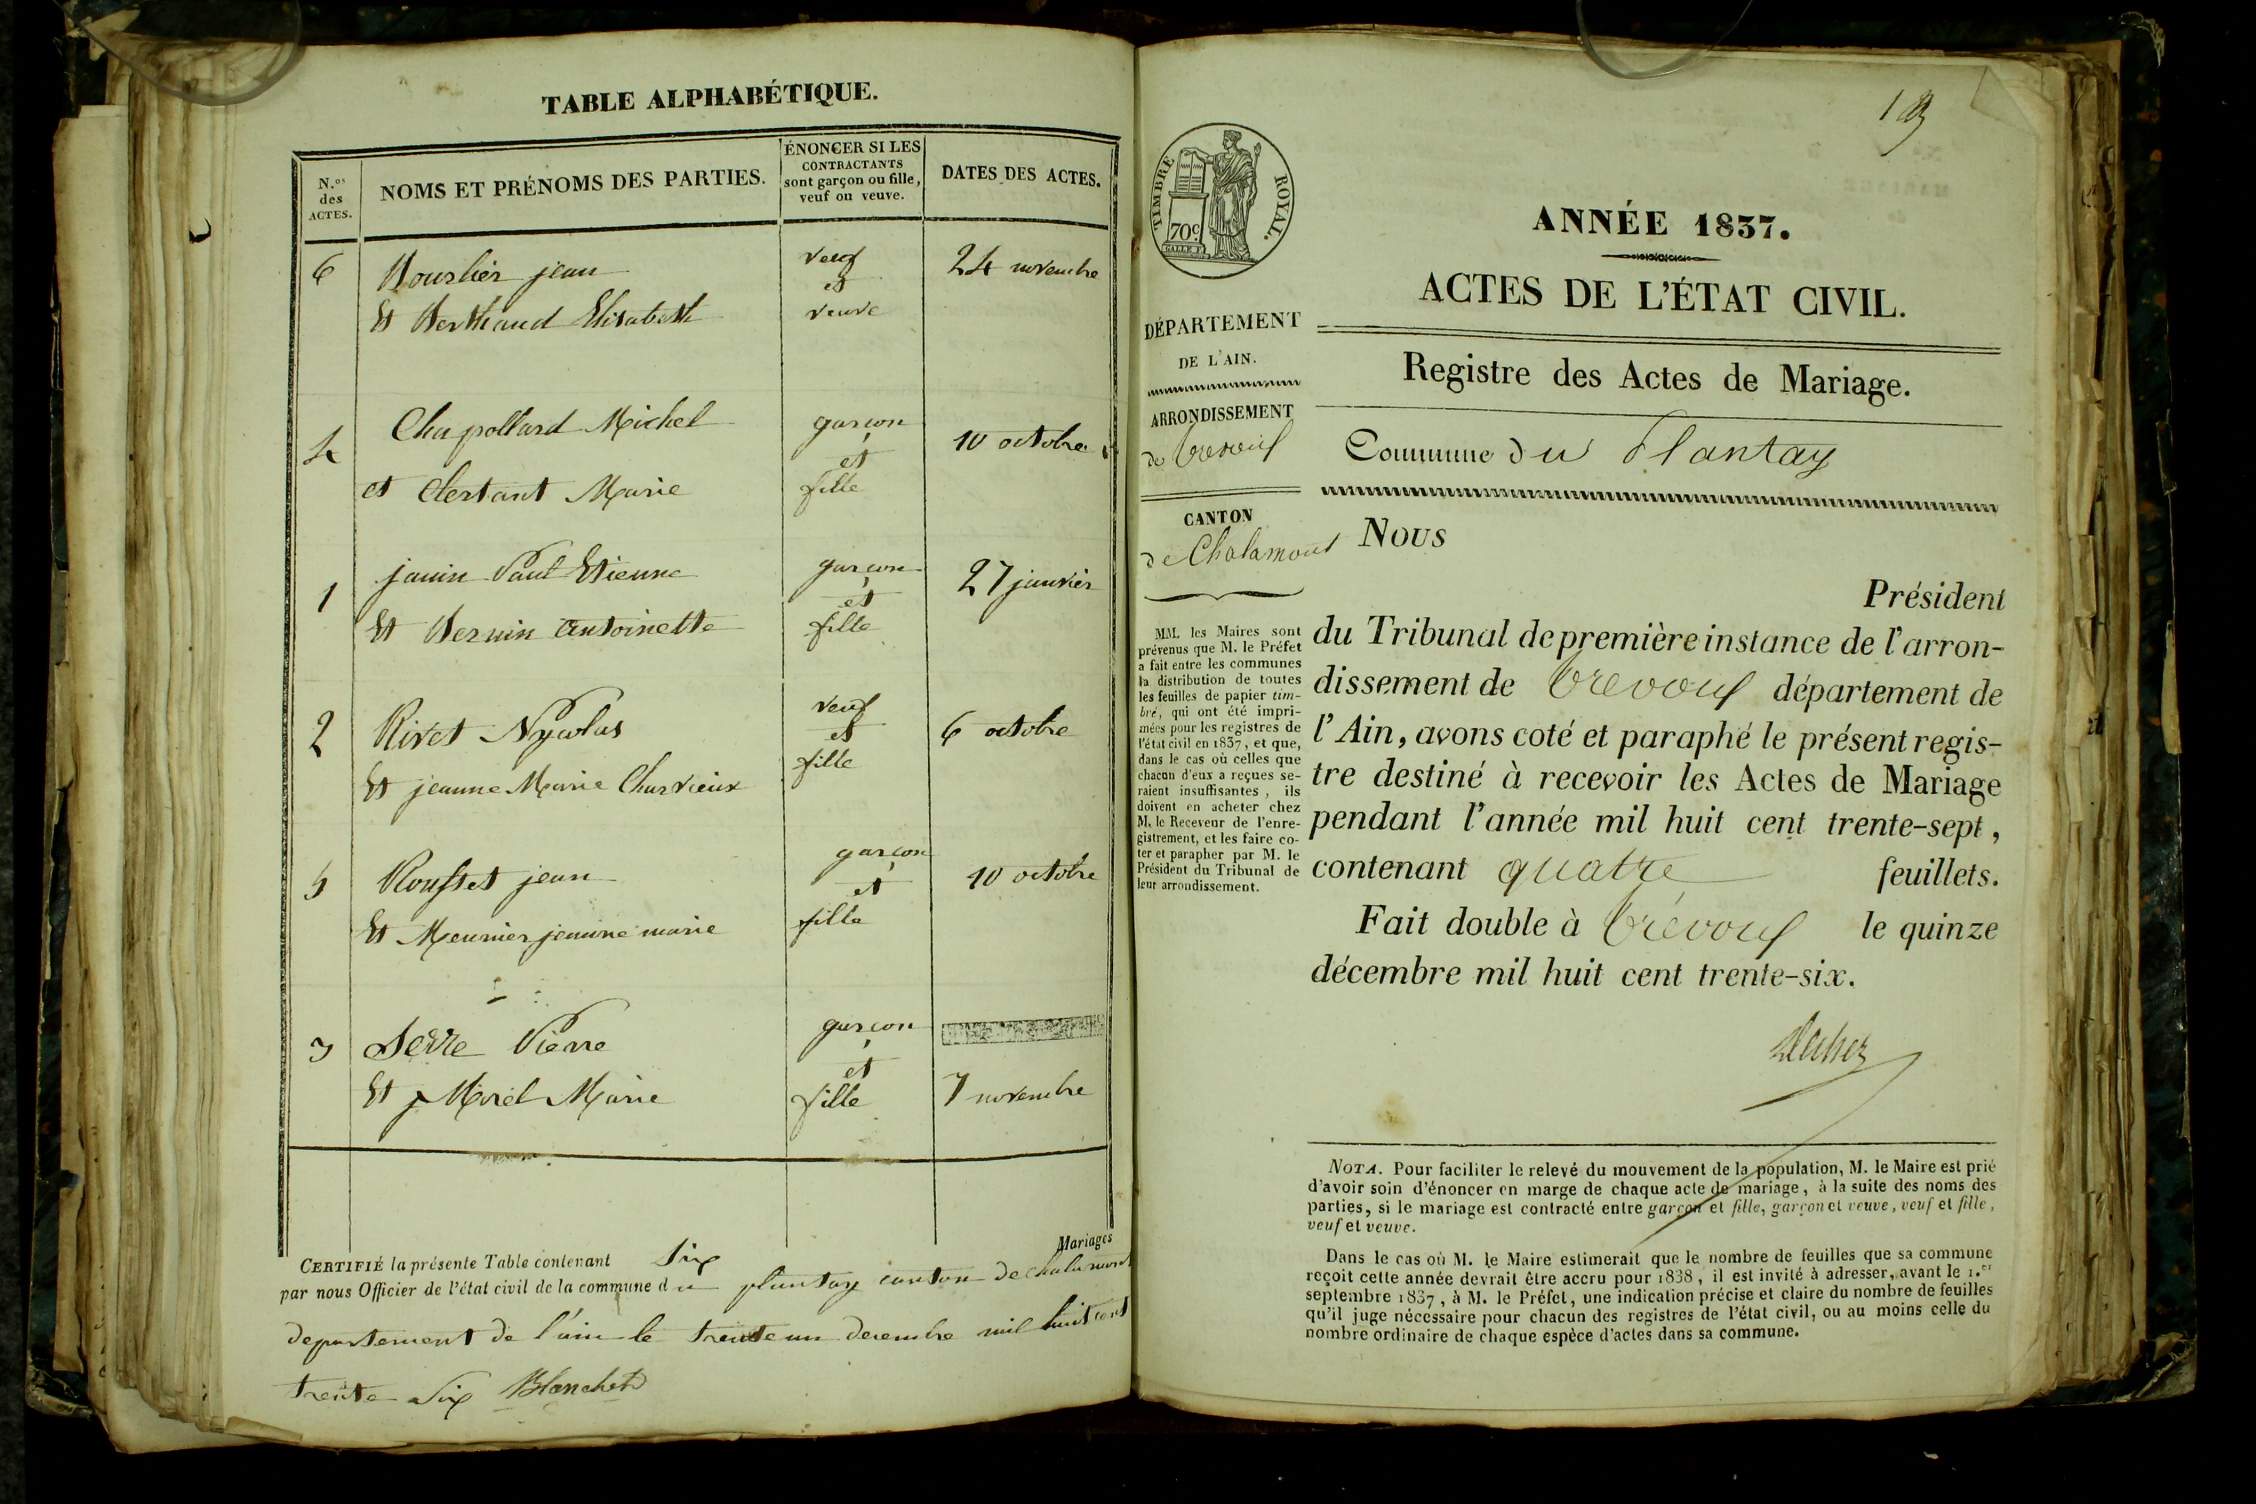 TABLE ALPHABÉTIQUE.
N.os des ACTES.
NOMS ET PRÉNOMS DES PARTIES.
ÉNONCER SI LES CONTRACTANTS sont garçon ou fille, veuf ou veuve.
DATES DES ACTES.
6 Bourlier jean veuf 24 novembre
et
Et Berthaud Elisabeth veuve
4 Chapollard Michel garçon 10 octobre
et
et Clertant Marie fille
1 janin Paul Etienne garçon 27 janvier
et
Et Bernin Antoinette fille
2 Rivet Nycolas veuf 6 octobre
et
Et jeanne Marie Charvieux fille
5 Rousset jean garçon 10 octobre
et
Et Meunier jeanne marie fille
3 Serre Pierre garçon
et
Et Morel Marie fille 7 novembre
CERTIFIÉ la présente Table contenant Six Mariages
par nous Officier de l'état civil de la commune du plantay canton de chalamont
departement de l'ain le trente un decembre mil huit cent
trente Six Blanchet
TIMBRE ROYAL.
70c
ANNÉE 1837.
ACTES DE L'ÉTAT CIVIL.
Registre des Actes de Mariage.
DÉPARTEMENT
DE L'AIN.
ARRONDISSEMENT
de Trevoux
CANTON
de Chalamont
Commune du Plantay
MM. les Maires sont
prévenus que M. le Préfet
a fait entre les communes
la distribution de toutes
les feuilles de papier tim-
bré, qui ont été impri-
mées pour les registres de
l'état civil en 1837, et que,
dans le cas où celles que
chacun d'eux a reçues se-
raient insuffisantes, ils
doivent en acheter chez
M. le Receveur de l'enre-
gistrement, et les faire co-
ter et parapher par M. le
Président du Tribunal de
leur arrondissement.
Nous
Président
du Tribunal de première instance de l'arron-
dissement de Trevoux département de
l'Ain, avons coté et paraphé le présent regis-
tre destiné à recevoir les Actes de Mariage
pendant l'année mil huit cent trente-sept,
contenant quatre feuillets.
Fait double à Trévoux le quinze
décembre mil huit cent trente-six.
NOTA. Pour faciliter le relevé du mouvement de la population, M. le Maire est prié
d'avoir soin d'énoncer en marge de chaque acte de mariage, à la suite des noms des
parties, si le mariage est contracté entre garçon et fille, garçon et veuve, veuf et fille,
veuf et veuve.
Dans le cas où M. le Maire estimerait que le nombre de feuilles que sa commune
reçoit cette année devrait être accru pour 1838, il est invité à adresser, avant le 1.er
septembre 1837, à M. le Préfet, une indication précise et claire du nombre de feuilles
qu'il juge nécessaire pour chacun des registres de l'état civil, ou au moins celle du
nombre ordinaire de chaque espèce d'actes dans sa commune.